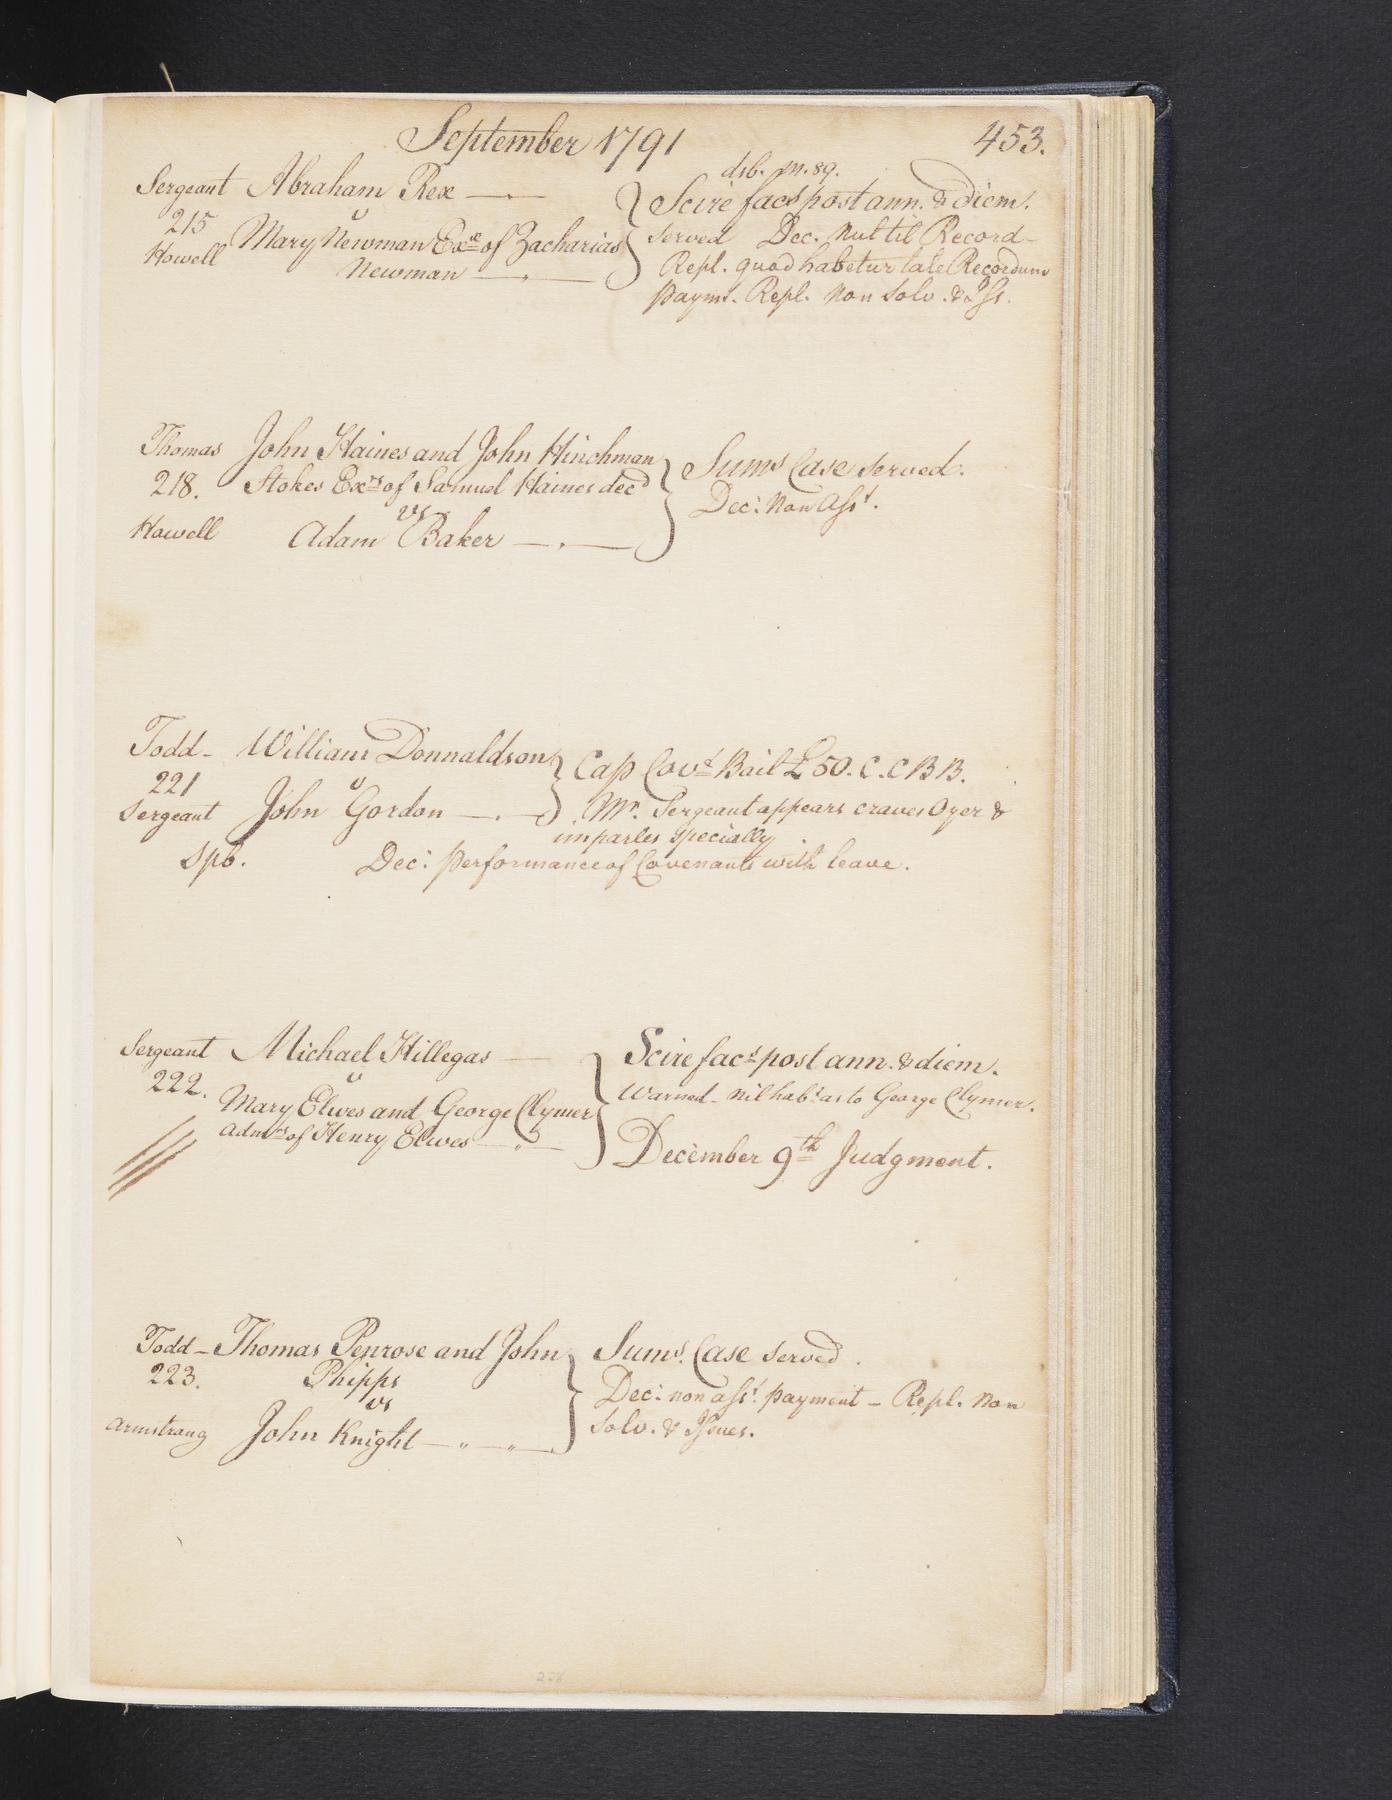 September 1791 453.
dsb. m. 89.
Sergeant Abraham Rex } Scire facs post ann. & diem.
215 v served Dec. Nul til Record
Howell Mary Newman Exx of Zacharias Repl. quod habetur tale Recordum
Newman paymt. Repl. Non Solv. & Iss.
Thomas John Haines and John Hinchman } Sums Case Served.
218. Stokes Exrs of Samuel Haines decd Dec: Non Asst.
vs
Howell Adam Baker
Todd William Donnaldson } Cap Covt Bail £50. C.C BB.
221 v
Sergeant John Gordon Mr. Sergeant appears craves Oyer &
imparles specially
Spb. Dec: performance of Covenants with leave.
Sergeant Michael Hillegas } Scire facs post ann. & diem.
222. v Warned Nil habt as to George Clymer.
Mary Elwes and George Clymer
Admrs of Henry Elwes December 9th Judgment.
Todd Thomas Penrose and John } Sums. Case Served.
223. Phipps Dec: non asst. payment - Repl. Non
vs
Armstrong John Knight Solv. & Issues.